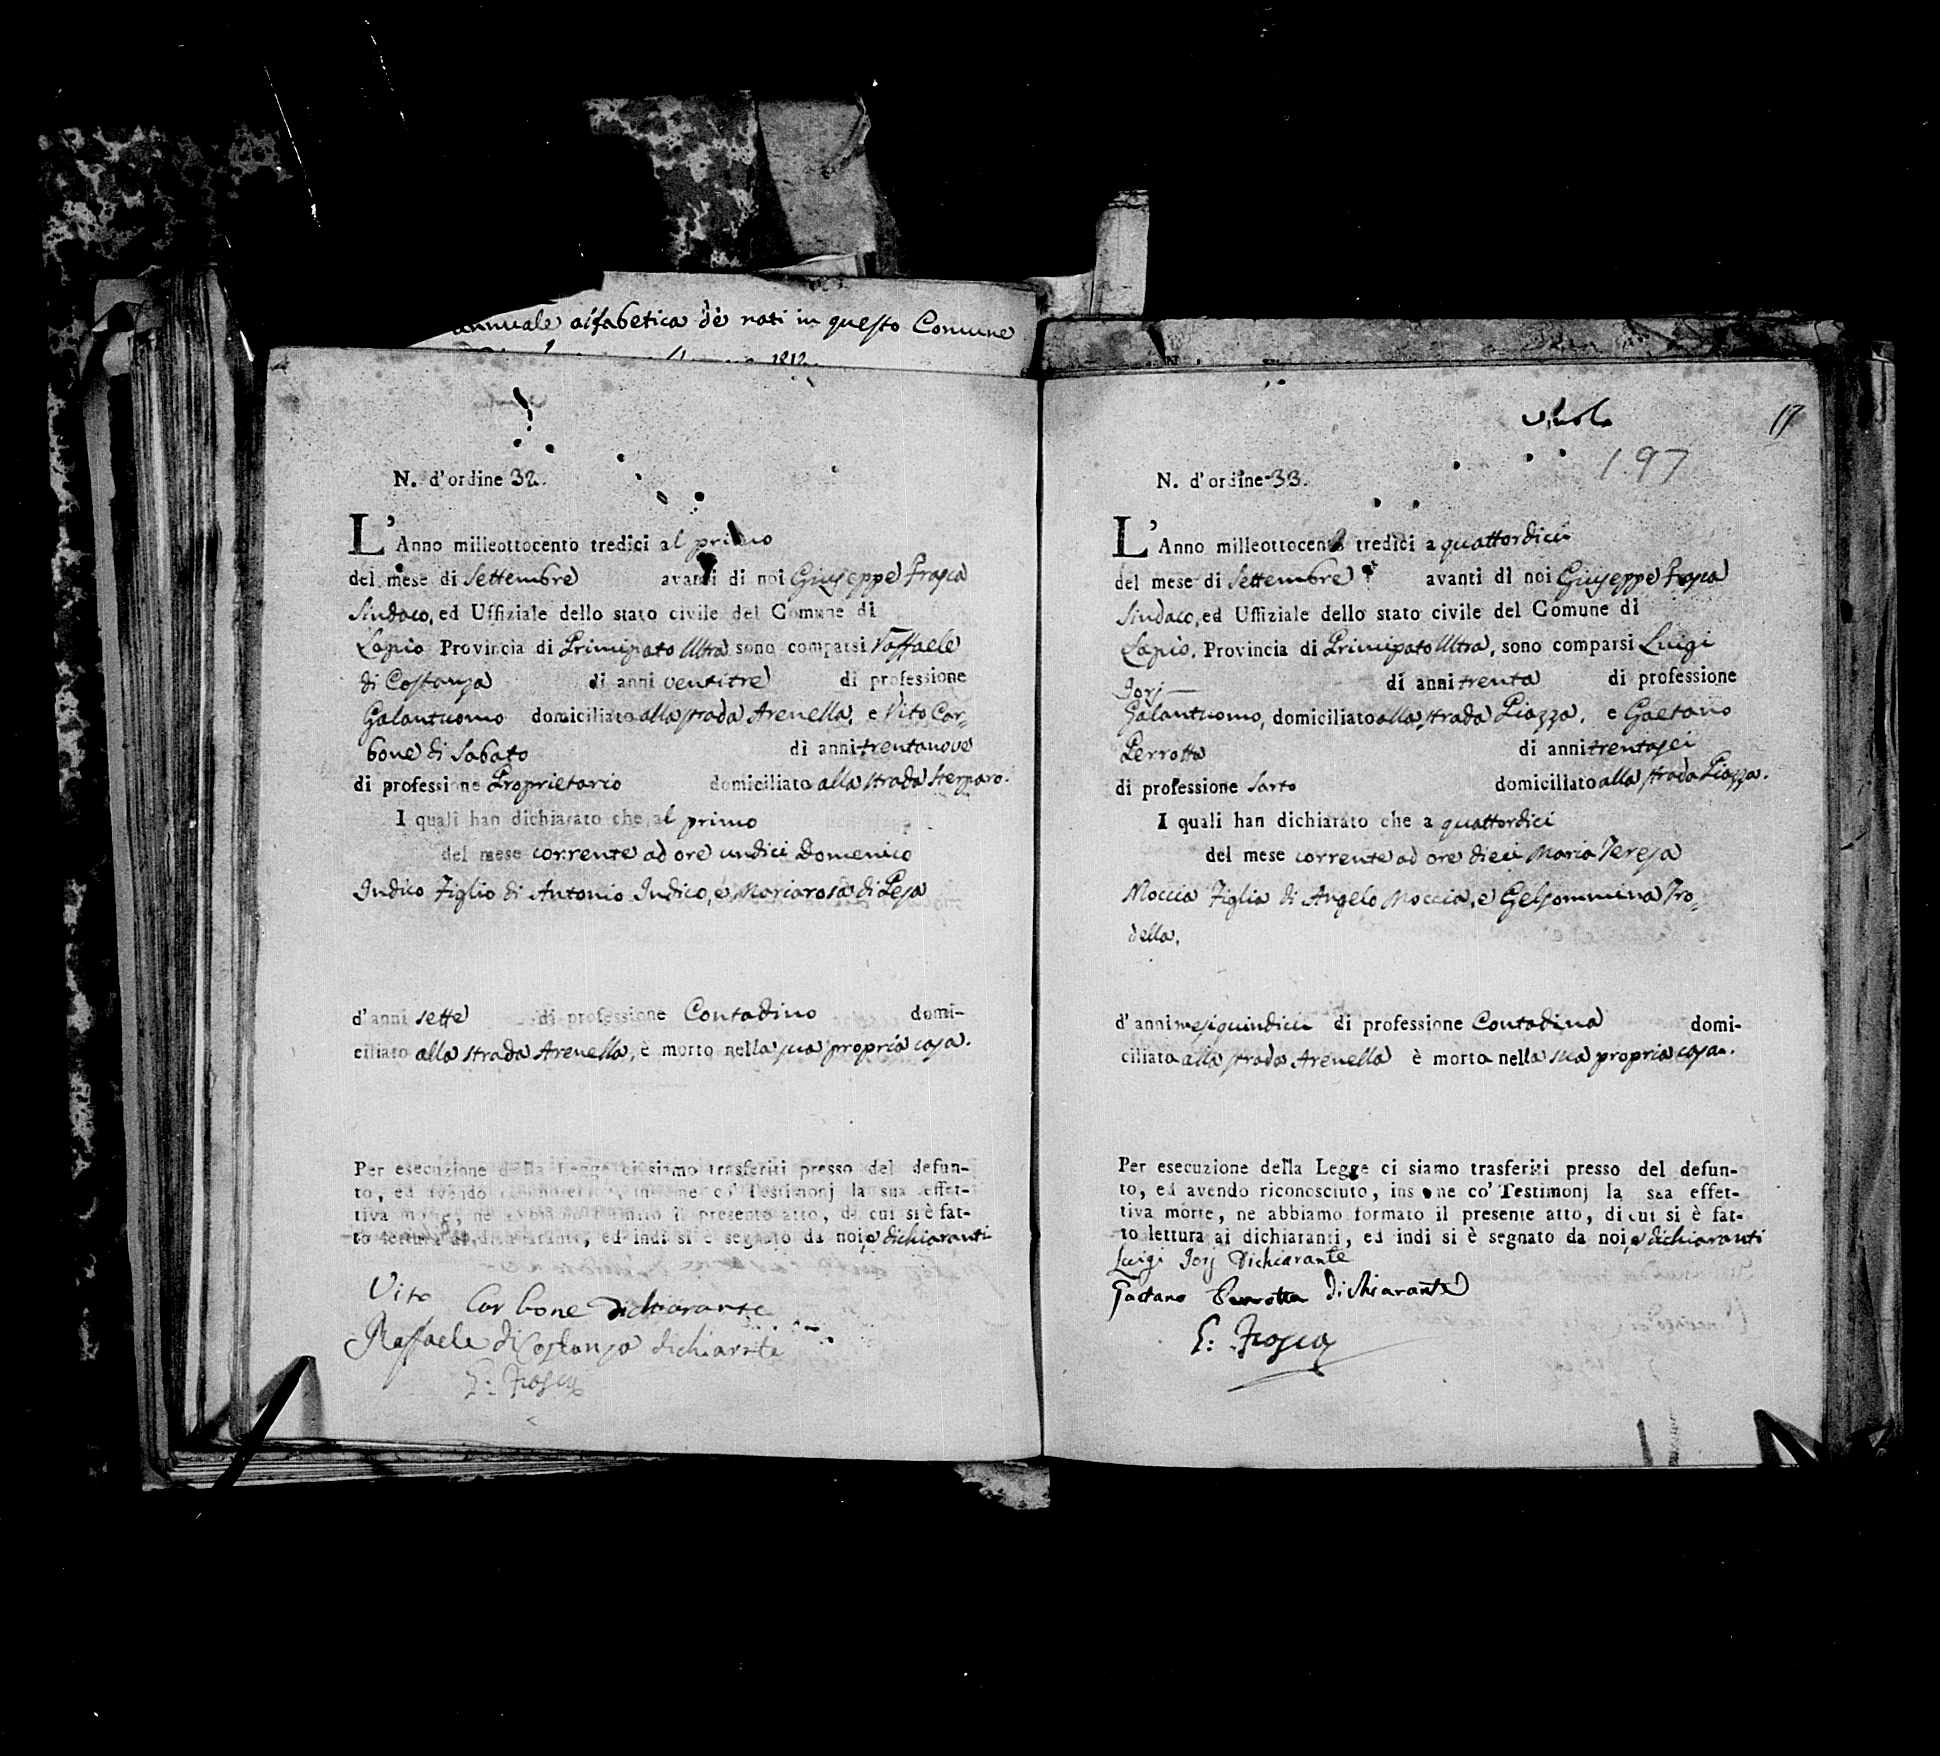 annuale alfabetica de nati in questo Comune
1812.
N. d'ordine 32.
L'Anno milleottocento tredici al primo
del mese di Settembre avanti di noi Giuseppe Frasca
Sindaco, ed Uffiziale dello stato civile del Comune di
Lapio Provincia di Principato Ultra sono comparsi Raffaele
di Costanza di anni ventitre di professione
Galantuomo domiciliato alla strada Arenella, e Vito Car=
bone di Sabato di anni trentanove
di professione Proprietario domiciliato alla strada Sterparo.
I quali han dichiarato che al primo
del mese corrente ad ore undici Domenico
Iudico Figlio di Antonio Iudico, e Mariarosa di Pesa
d'anni sette di professione Contadino domi-
ciliato alla strada Arenella, è morto nella sua propria casa.
Per esecuzione della Legge ci siamo trasferiti presso del defun-
to, ed avendo riconosciuto, insieme co' Testimonj la sua effet-
tiva morte, ne abbiamo formato il presente atto, di cui si è fat-
to lettura ai dichiaranti, ed indi si è segnato da noi, e dichiaranti
Vito Carbone dichiarante
Raffaele di Costanza dichiarante
G: Frasca
17
197
N. d'ordine 33.
L'Anno milleottocento tredici a quattordici
del mese di Settembre avanti di noi Giuseppe Frasca
Sindaco, ed Uffiziale dello stato civile del Comune di
Lapio, Provincia di Principato Ultra, sono comparsi Luigi
Iorj di anni trenta di professione
Galantuomo, domiciliato alla strada Piazza, e Gaetano
Perrotta di anni trentasei
di professione Sarto domiciliato alla strada Piazza.
I quali han dichiarato che a quattordici
del mese corrente ad ore dieci Maria Teresa
Moccia Figlia di Angelo Moccia, e Gelsommina Tro=
della,
d'anni mesi quindici di professione Contadina domi-
ciliata alla strada Arenella è morta nella sua propria casa.
Per esecuzione della Legge ci siamo trasferiti presso del defun-
to, ed avendo riconosciuto, insieme co' Testimonj la sua effet-
tiva morte, ne abbiamo formato il presente atto, di cui si è fat-
to lettura ai dichiaranti, ed indi si è segnato da noi, e dichiaranti
Luigi Iorj Dichiarante
Gaetano Perrotta Dichiarante
G: Frasca